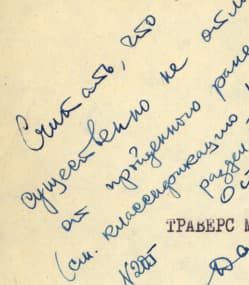 Считать, что
существенно не отли
от пройденного ране
(см. классификацию
раздел
ТРАВЕРС М